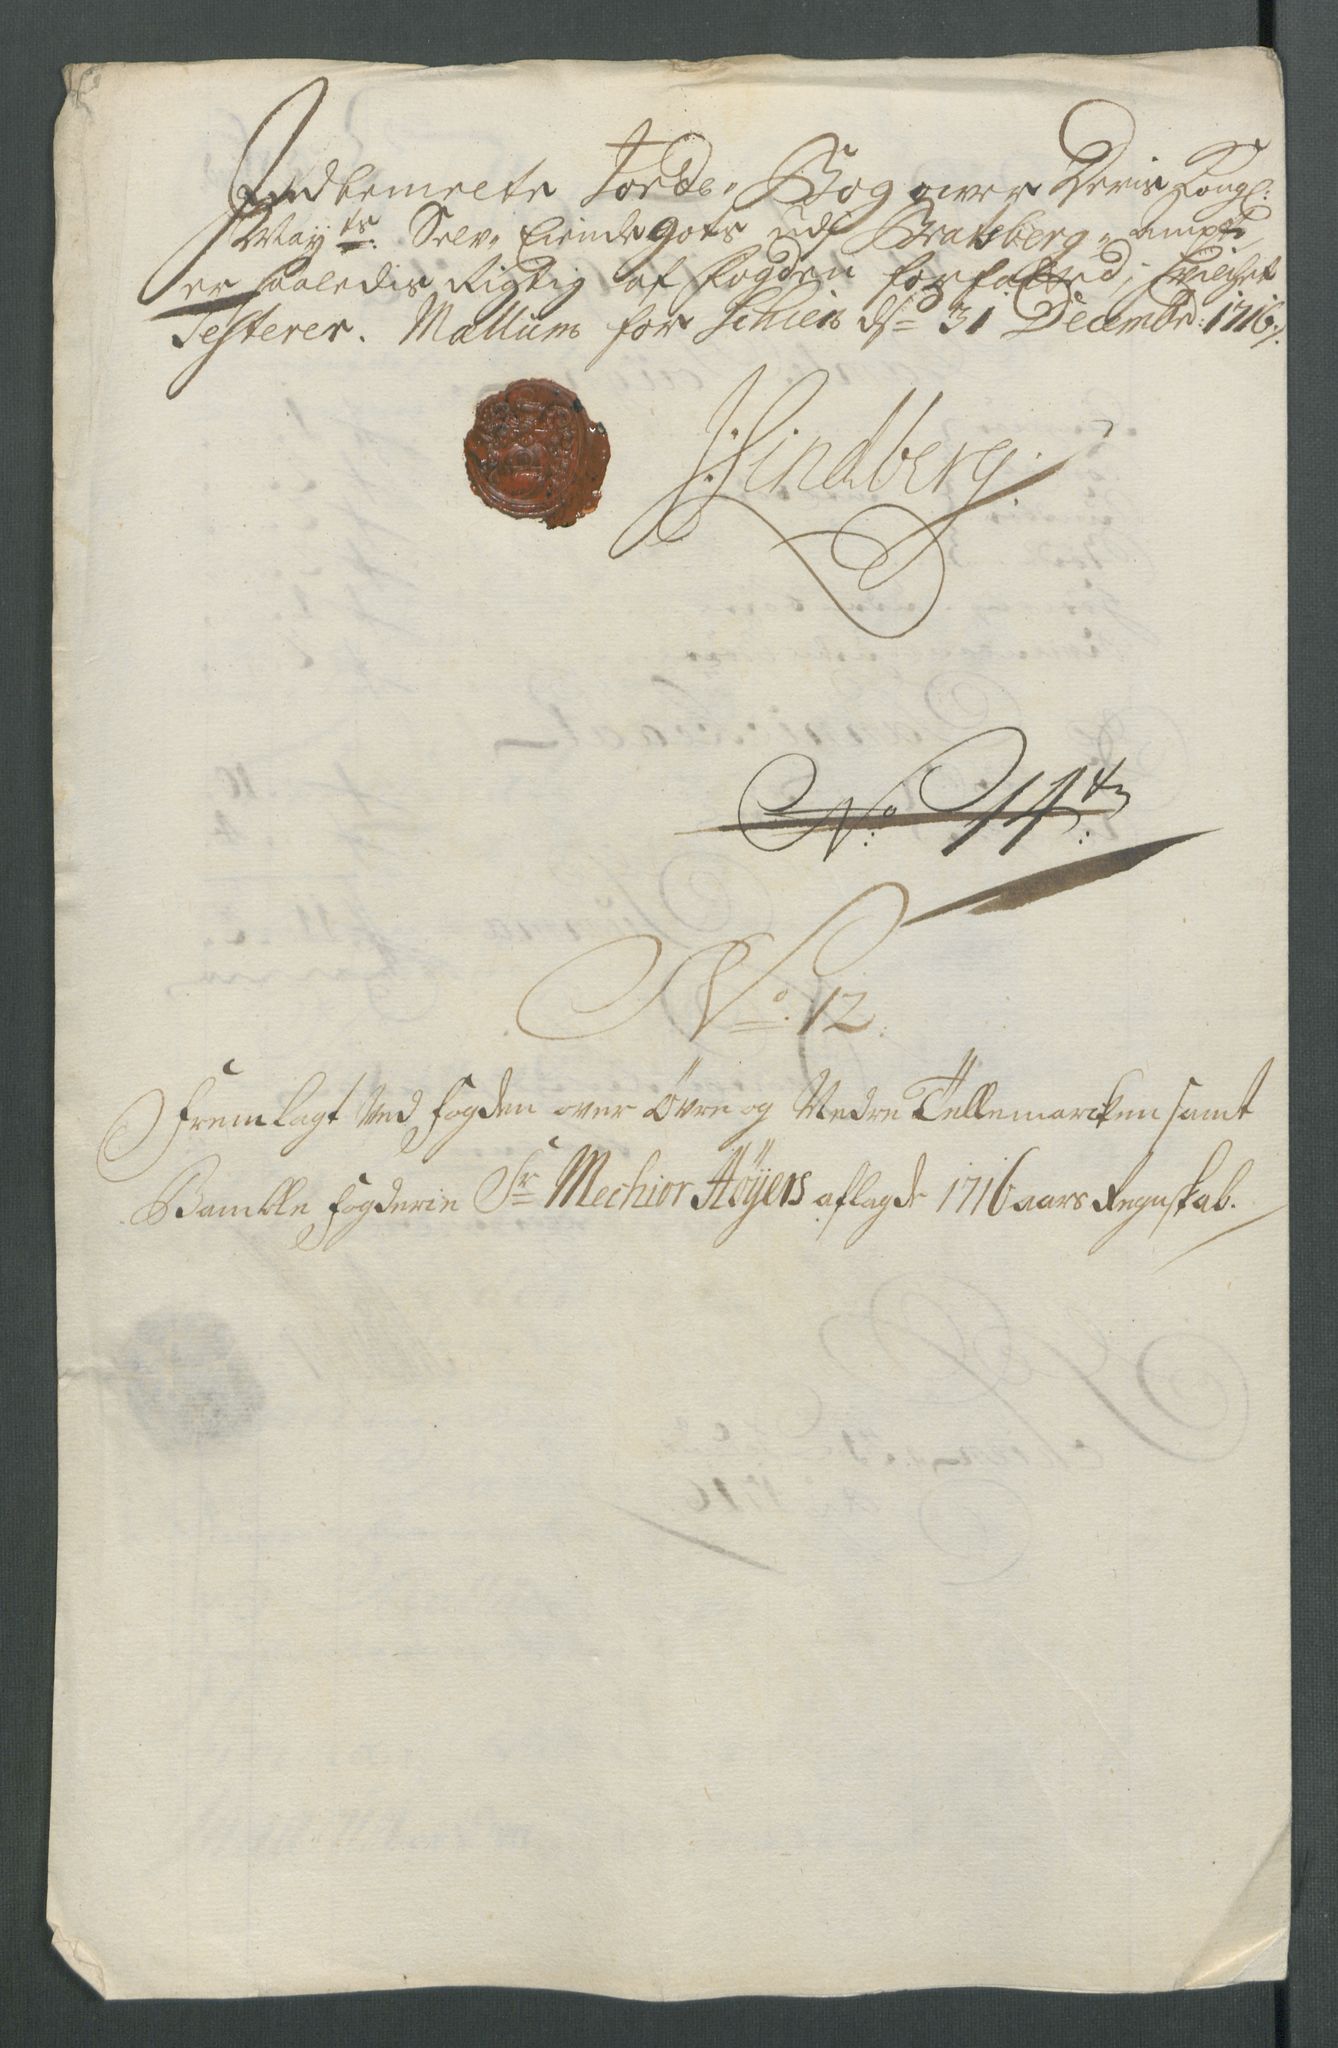 Indbemelte Jorde-Bog over Deris Kongl:
Mayts: Selv-Eiende gots udj Bratsberg-ampt,
er saaledis Rigtig af Fogden forfatted, Hvilchet
Testerer. Mællum for Schien ds 31 Decembr: 1716/.
J: Lindberg.
No: 14tn:
No. 12.
Fremlagt Ved Fogden over Øvre og Nedre Tellemarcken samt
Bamble Fogderie Sr Mechior Høÿers aflagde 1716 aars Regnskab.